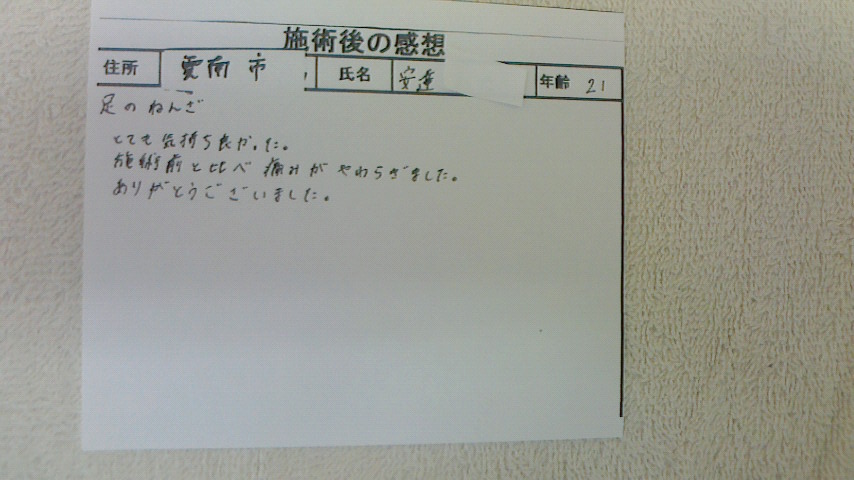 施術後の感想
住所 雲南市 氏名 安達 年齢 21
足のねんざ
とても気持ち良かった。
施術前と比べ痛みがやわらぎました。
ありがとうございました。